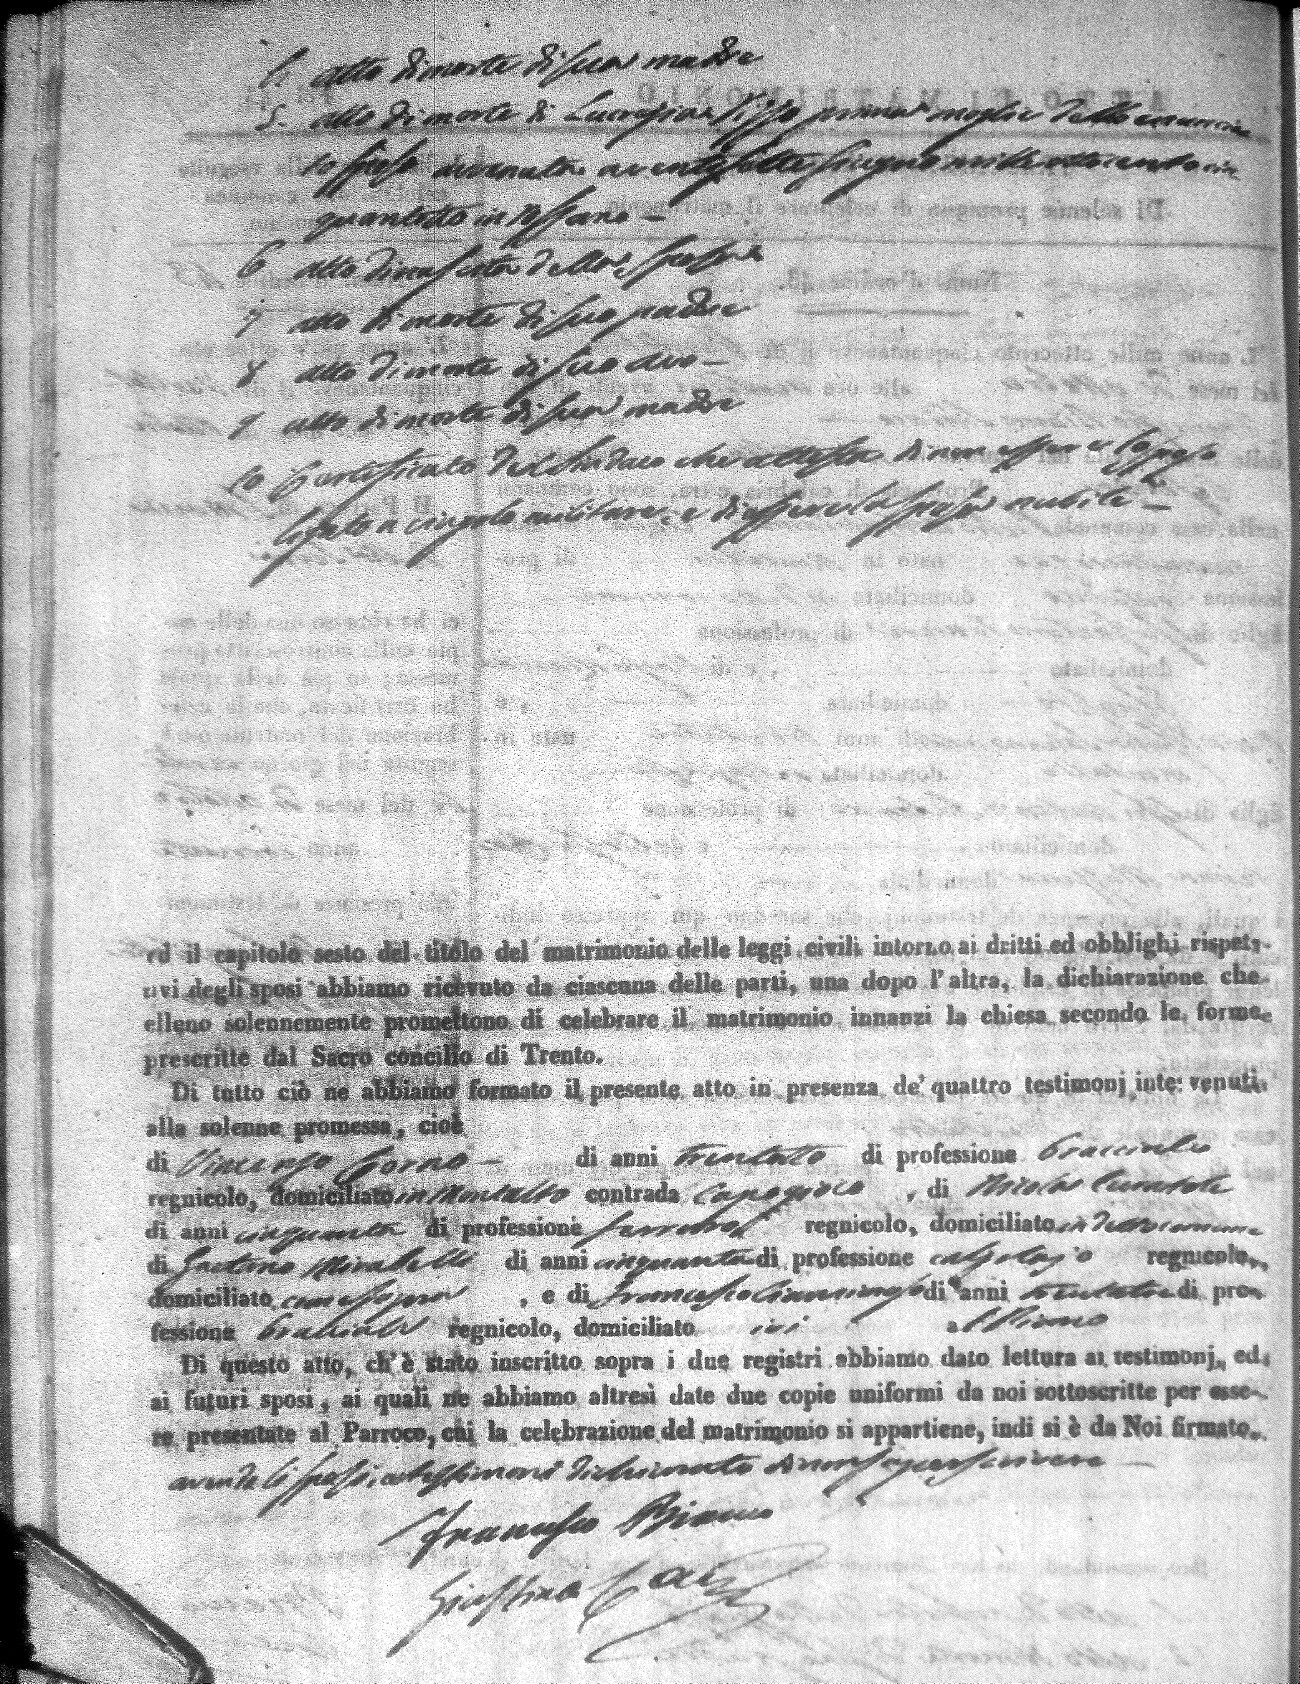 atto di morte di sua madre
5. atto di morte di Lucrezia prima moglie dello enuncia
to sposo avvenuta a ventisette giugno mille ottocento cin
quantotto in
6 atto di nascita della sposa
7 atto di morte di suo padre
8 atto di morte di suo avo –
9 atto di morte di sua madre
10 Certificato del Sindaco che attesta di non essere lo sposo
militare, e di essere la sposa nubile –
ed il capitolo sesto del titolo del matrimonio delle leggi civili intorno ai dritti ed obblighi rispet-
tivi degli sposi abbiamo ricevuto da ciascuna delle parti, una dopo l'altra, la dichiarazione che
elleno solennemente promettono di celebrare il matrimonio innanzi la chiesa secondo le forme
prescritte dal Sacro concilio di Trento.
Di tutto ciò ne abbiamo formato il presente atto in presenza de' quattro testimonj intervenuti
alla solenne promessa, cioè
di Vincenzo – di anni trentotto di professione bracciale
regnicolo, domiciliato in Montalto contrada , di Nicola
di anni cinquanta di professione regnicolo, domiciliato in detto comune
di Gaetano Mirabelli di anni cinquanta di professione calzolajo regnicolo,
domiciliato come sopra , e di Francesco di anni di pro-
fessione bracciale regnicolo, domiciliato ivi
Di questo atto, ch'è stato inscritto sopra i due registri abbiamo dato lettura ai testimonj, ed
ai futuri sposi, ai quali ne abbiamo altresì date due copie uniformi da noi sottoscritte per esse-
re presentate al Parroco, cui la celebrazione del matrimonio si appartiene, indi si è da Noi firmato.
avendo li sposi, e testimoni dichiarato di non saper scrivere –
Francesco Bianco
Giustino